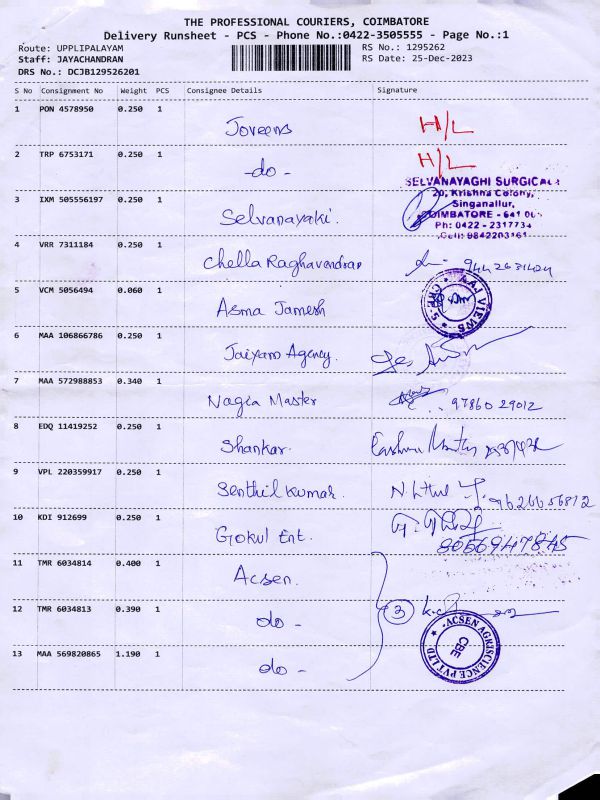 THE PROFESSIONAL COURIERS, COIMBATORE
Delivery Runsheet - PCS - Phone No.:0422-3505555 - Page No.:1
Route: UPPLIPALAYAM RS No.: 1295262
Staff: JAYACHANDRAN RS Date: 25-Dec-2023
DRS No.: DCJB129526201
S No Consignment No Weight PCS Consignee Details Signature
1 PON 4578950 0.250 1 Joveens H/L
2 TRP 6753171 0.250 1 -do- H/L
SELVANAYAGHI SURGICALS
20, Krishna Colony,
Singanallur,
COIMBATORE - 641 005
Ph: 0422 - 2317734
Cell: 9842203161
3 IXM 505556197 0.250 1 Selvanayaki.
4 VRR 7311184 0.250 1 Chella Raghavendran
5 VCM 5056494 0.060 1 Asma Jamesh
AAJ VIEWS
6 MAA 106866786 0.250 1 Jaiyam Agency.
7 MAA 572988853 0.340 1 Nagia Master 97860 29012
8 EDQ 11419252 0.250 1 Shankar.
9 VPL 220359917 0.250 1 Senthil Kumar.
10 KDI 912699 0.250 1 Gokul Ent. 8056947845
11 TMR 6034814 0.400 1 Acsen.
12 TMR 6034813 0.390 1 do - 3
13 MAA 569820865 1.190 1 do -
ACSEN AGRISCIENCE PVT LTD
CBE